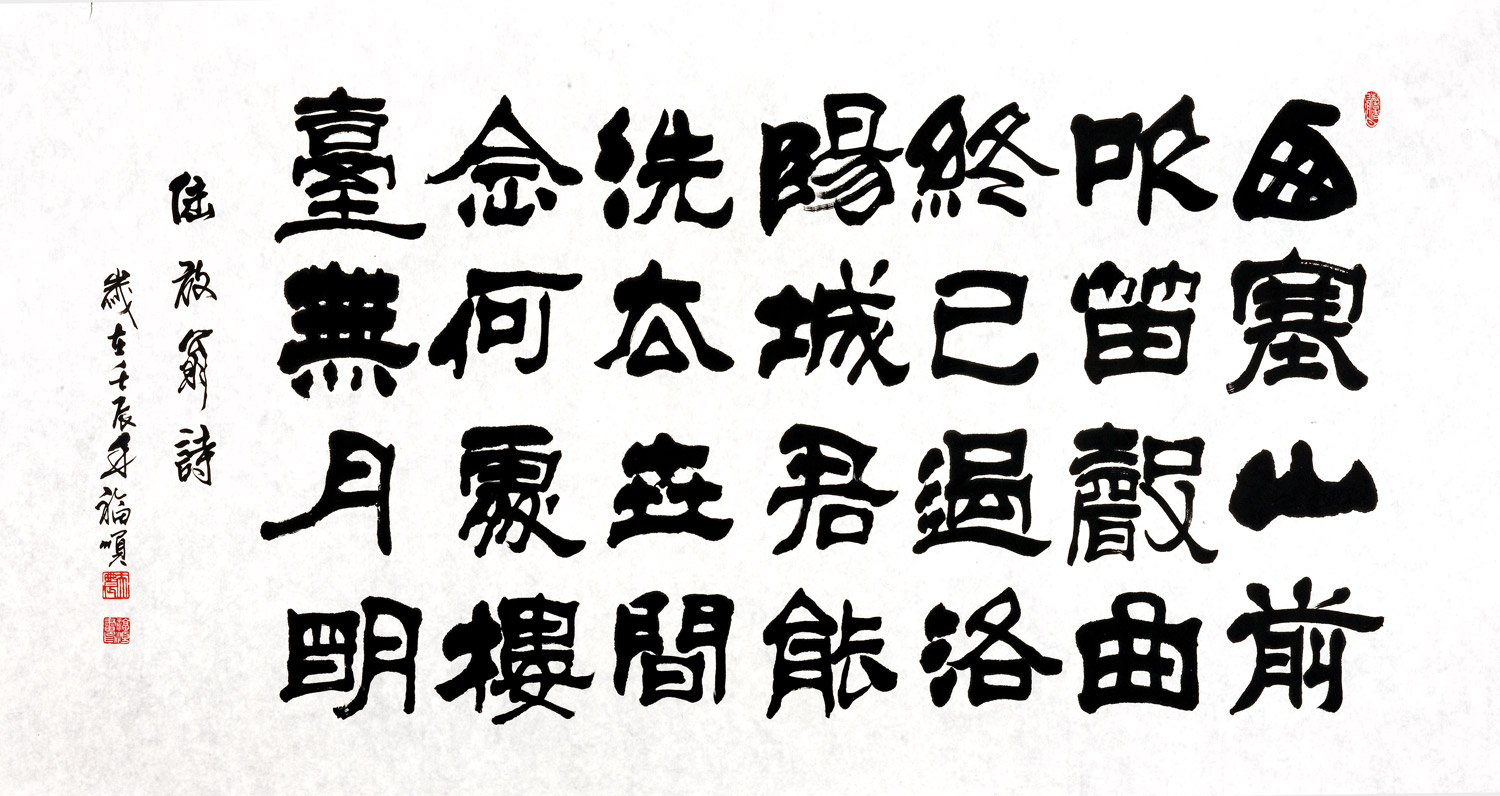 西塞山前
吹笛聲曲
終已過洛
陽城君能
洗去世間
念何處樓
臺無月明
陸放翁詩
歲在壬辰年福